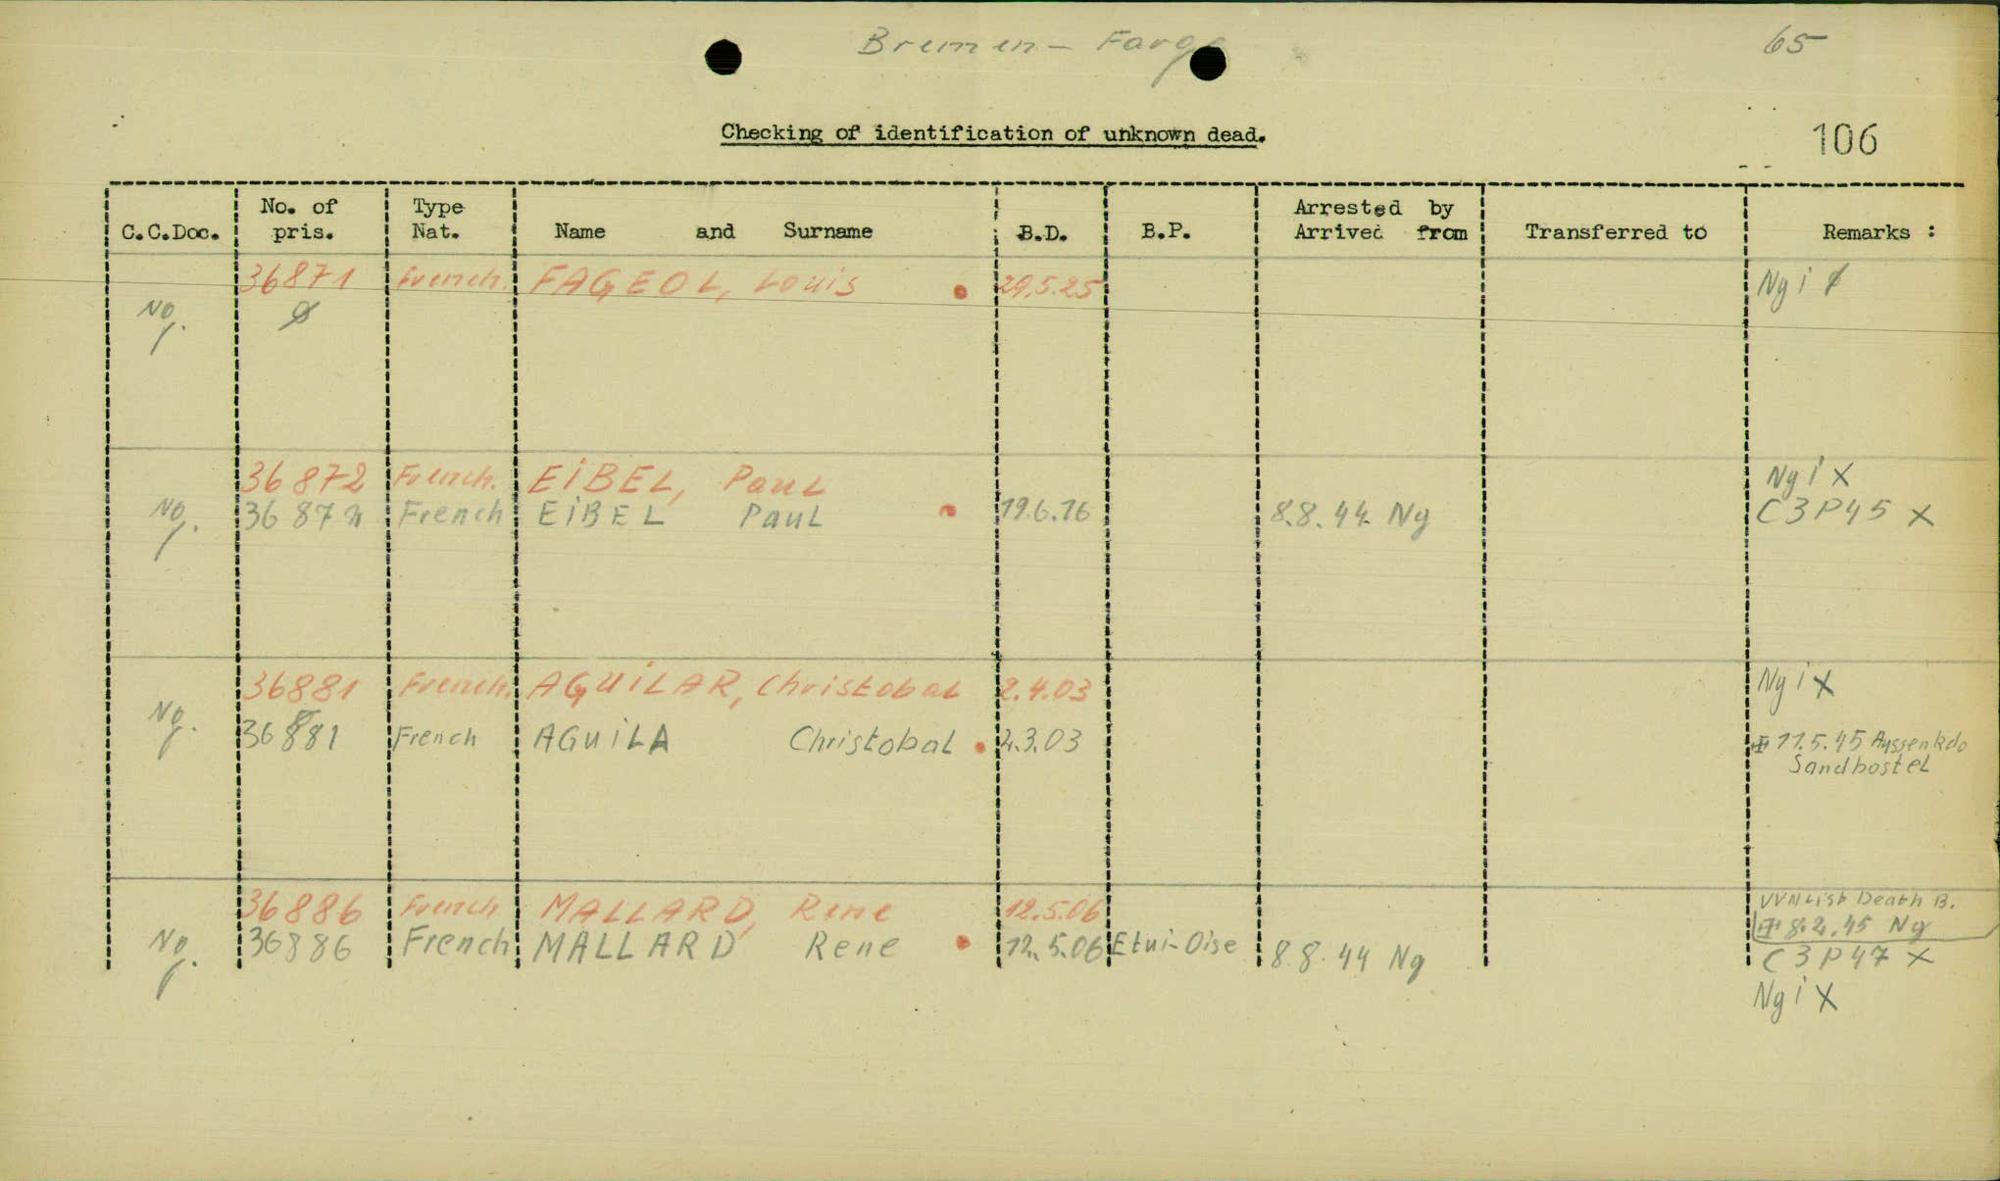 Bremen - Farge 65
Checking of identification of unknown dead.
106
C.C.Doc. No. of pris. Type Nat. Name and Surname B.D. B.P. Arrested by Arrived from Transferred to Remarks :
36871 French. FAGEOL, Louis 29.5.25 Ngi
Ng.
36872 French. EiBEL, Paul Ngi X
Ng. 36872 French EiBEL Paul 19.6.16 8.8.44 Ng C3P45 X
36881 French. AGUiLAR, Christobal 2.4.03 Ngi X
Ng. 36881 French AGUiLA Christobal 2.3.03 11.5.45 Aussenkdo
Sandbostel
36886 French MALLARD, Rene 12.5.06 VVN List Death B.
8.2.45 Ng
Ng. 36886 French MALLARD Rene 12.5.06 Etui-Oise 8.8.44 Ng C3P47 X
Ngi X